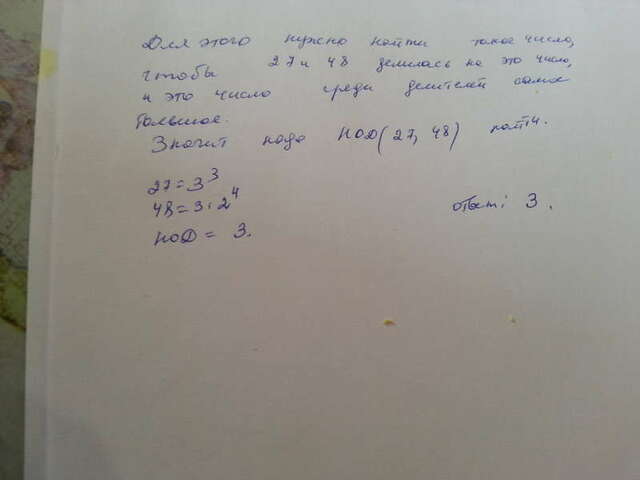 Для этого нужно найти такое число,
чтобы 27 и 48 делилась на это число,
и это число среди делителей самое
большое.
Значит надо НОД(27, 48) найти.
27 = 3³
48 = 3 · 2⁴
НОД = 3.
ответ: 3.